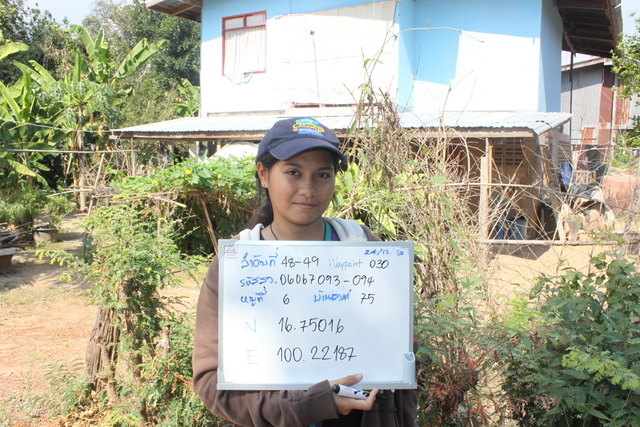 24/12/58
ลำดับที่ 48-49 Waypoint 030
รหัสรูป. 06067093-094
หมู่ที่ 6 บ้านเลขที่ 75
N 16.75016
E 100.22187